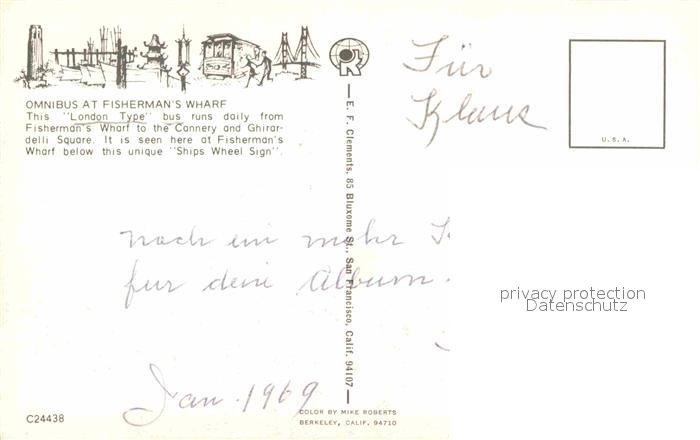 OMNIBUS AT FISHERMAN'S WHARF
This "London Type" bus runs daily from
Fisherman's Wharf to the Cannery and Ghirar-
delli Square. It is seen here at Fisherman's
Wharf below this unique "Ships Wheel Sign".
E. F. Clements, 85 Bluxome St., San Francisco, Calif. 94107
Für
Klaus
U.S.A.
noch ein mehr
fur deine Album.
privacy protection
Datenschutz
Jan. 1969
C24438
COLOR BY MIKE ROBERTS
BERKELEY, CALIF. 94710